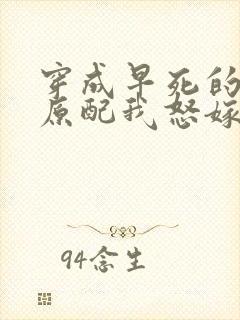 穿成早死的
原配我怒嫁
94念生